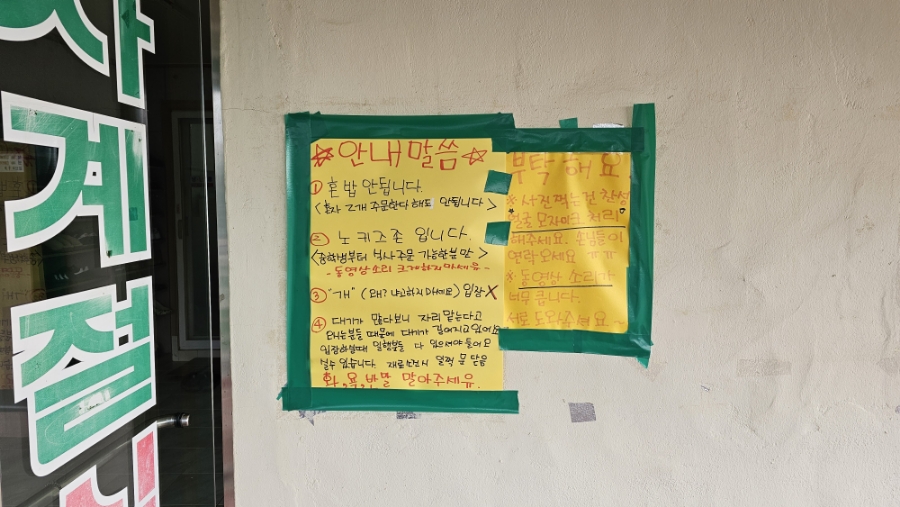 사계절
☆안내말씀☆
① 혼밥 안됩니다.
<혼자 2개 주문한다 해도 안됩니다>
② 노키즈존 입니다.
<중학생부터 식사주문 가능한분만>
-동영상소리 크게하지마세유-
③ "개" (왜? 냐고하지마세요) 입장X
④ 대기가 많다보니 자리 맡는다고
때문에 대기가 길어지고 있어요
입장하실때 일행분들 다 있으셔야 들어오
실수 있습니다. 재료소진시 일찍 문 닫음
화,욕,반말 말아주세유.
부탁해요
※ 사진찍는건 찬성
얼굴 모자이크 처리
해주세요. 손님들이
연락오세요 ㅠㅠ
※ 동영상 소리가
너무 큽니다.
서로 도와주세요